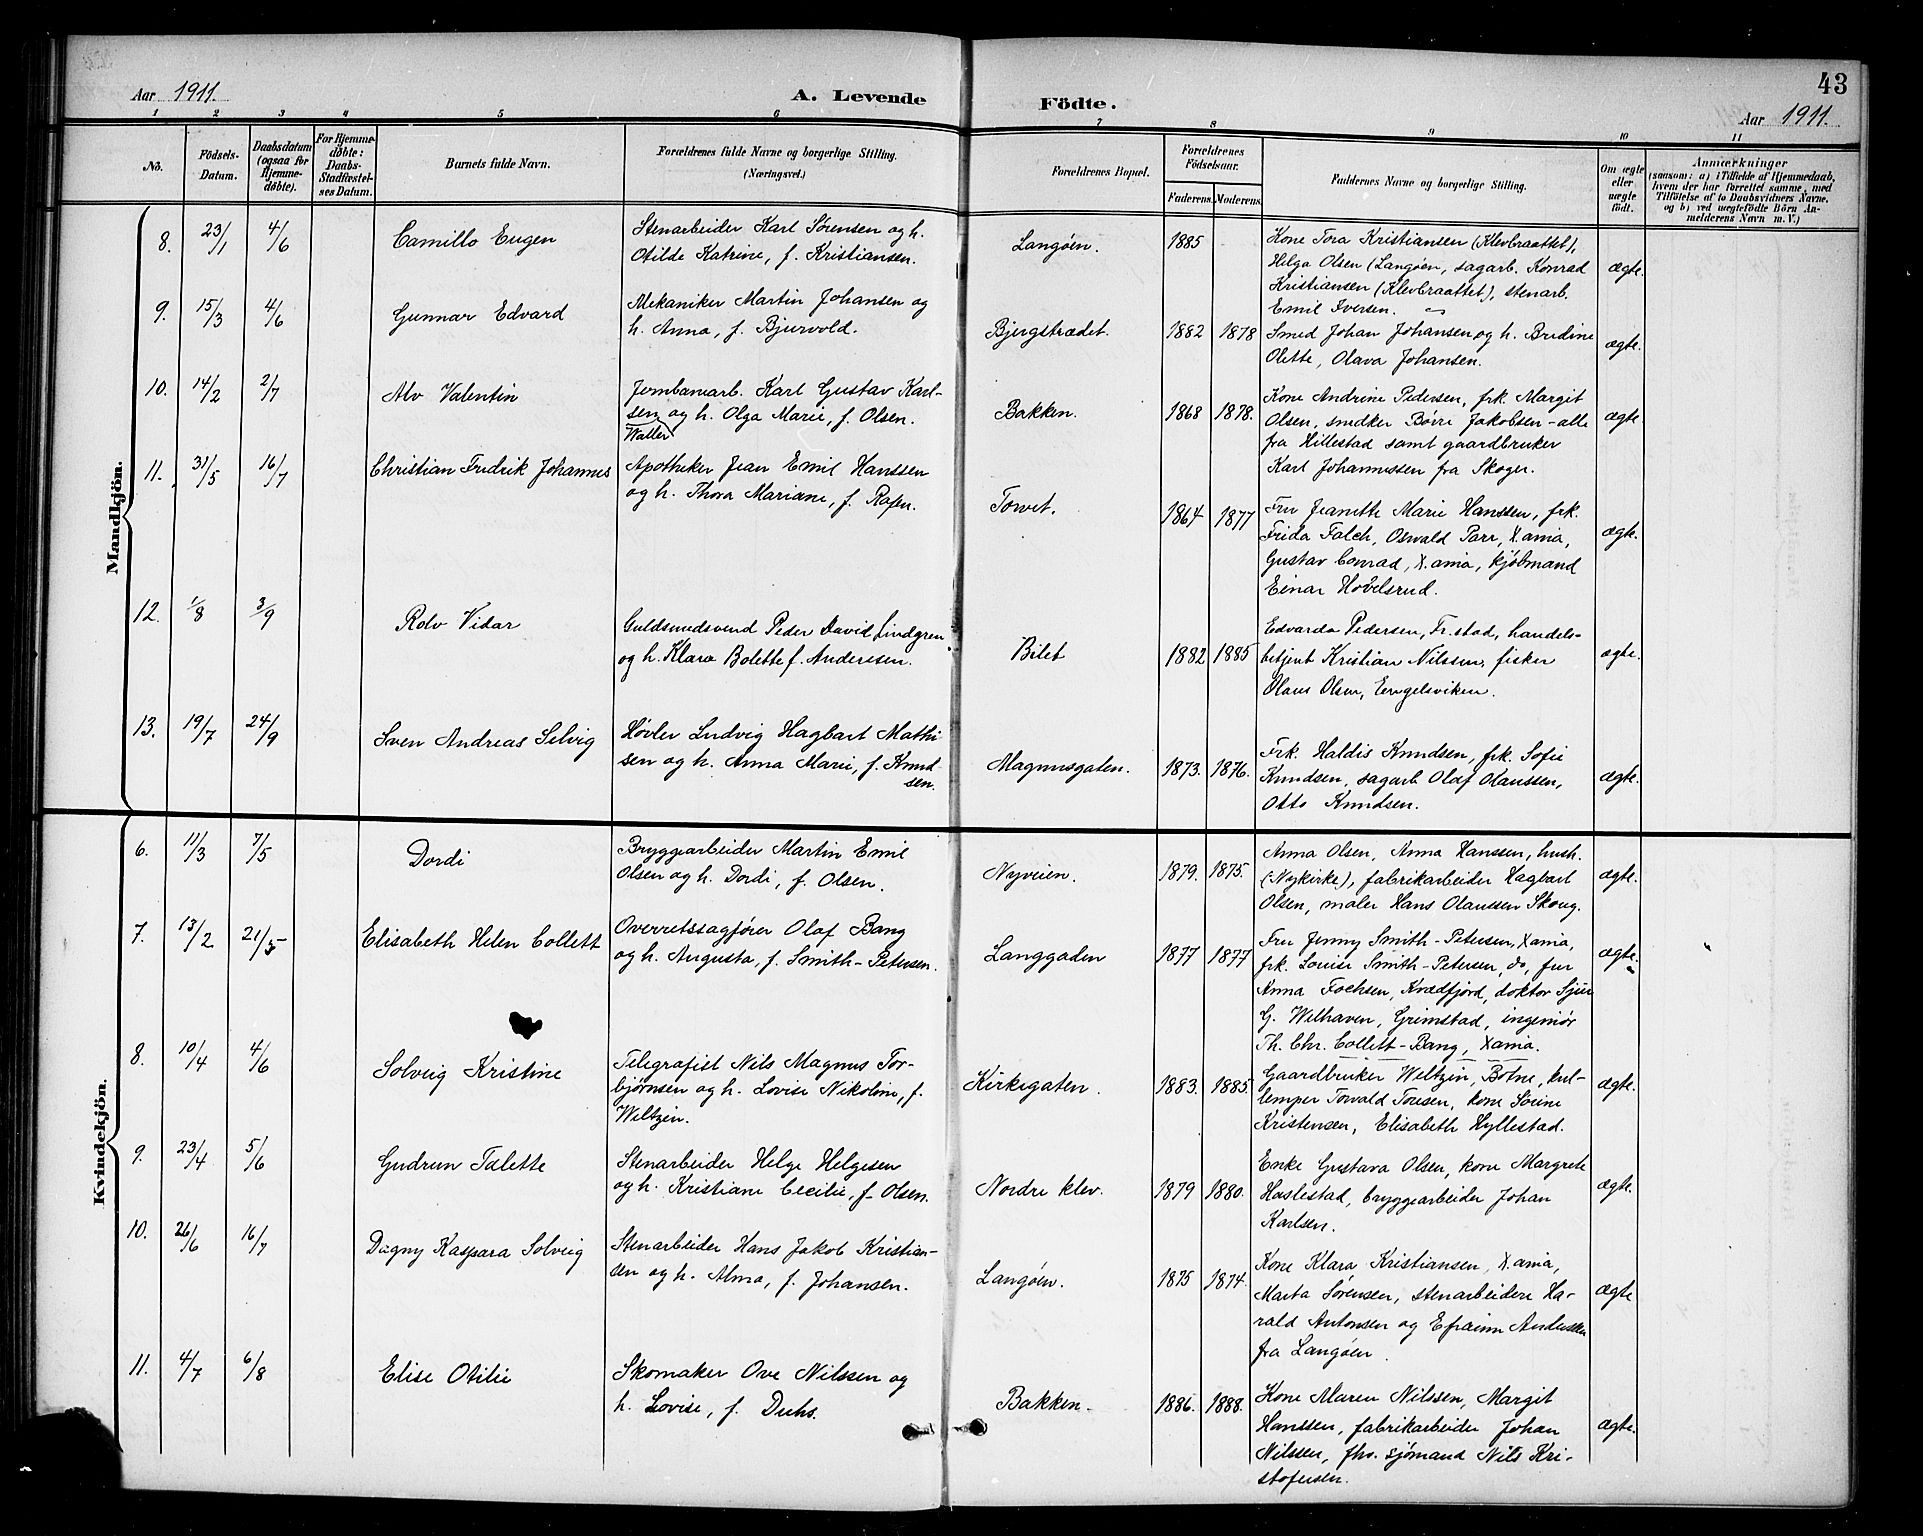 43
Aar 1911.
A. Levende
Födte.
Aar 1911.
1 2 3 4 5 6 7 8 9 10 11
No.
Födsels-Datum.
Daabsdatum (ogsaa for Hjemme-døbte).
For Hjemme-døbte: Daabs-Stadfæstel-ses Datum.
Barnets fulde Navn.
Forældrenes fulde Navne og borgerlige Stilling.
(Næringsvei.)
Forældrenes Bopæl.
Forældrenes Födselsaar.
Faderens. Moderens.
Faddernes Navne og borgerlige Stilling.
Om ægte eller uægte födt.
Anmærkninger
(saasom: a) i Tilfælde af Hjemmedaab,
hvem der har forrettet samme, med
Tilföielse af to Daabsvidners Navne.
og b) ved uægtefödte Börn An-
melderens Navn m. V.)
Mandkjön.
8. 23/1 4/6 Camillo Eugen
Stenarbeider Karl Sørensen og h.
Otilde Katrine, f. Kristiansen.
Langøen. 1885
Kone Tora Kristiansen (Klevbraattet),
Helga Olsen (Langøen, sagarb. Konrad
Kristiansen (Klevbraattet), stenarb.
Emil Iversen.
ægte.
9. 15/3 4/6 Gunnar Edvard
Mekaniker Martin Johansen og
h. Anna, f. Bjurvold.
Bjergstrædet. 1882 1878
Smed Johan Johansen og h. Bredine
Olette, Olava Johansen.
ægte.
10. 14/2 2/7 Alv Valentin
Jernbanearb. Karl Gustav Karl-
sen og h. Olga Marie, f. Olsen.
Bakken. 1868 1878.
Kone Andrine Pedersen, frk. Margit
Olsen, snedker Børre Jakobsen - alle
fra Hillestad samt gaardbruker
Karl Johannessen fra Skoger.
ægte.
Walter
11. 31/5 16/7 Christian Fredrik Johannes
Apotheker Jean Emil Hanssen
og h. Thora Mariane, f.
Torvet. 1864 1877
Fru Jeanette Marie Hanssen, frk.
Frida Falch, Oswald Parr, X.ania,
Gustav Conrad, X.ania, kjøbmand
Einar Hovelsrud.
ægte.
12. 1/8 3/9 Rolv Vidar
Guldsmedsvend Peder David Lindgren
og h. Klara Bolette f. Andersen.
Bilet 1882 1885
Edvarda Pedersen, Fr.stad, handels-
betjent Kristian Nilssen, fisker
Olaus Olsen, Engelsviken.
ægte.
13. 19/7 24/9 Sven Andreas Selvig
Høvler Ludvig Hagbart Mathi
sen og h. Anna Marie, f. Knud-
sen.
Magnusgaten. 1873. 1876.
Frk. Haldis Knudsen, frk. Sofie
Knudsen, sagarb. Olaf Hanssen,
Otto Knudsen.
ægte.
Kvindekjön.
6. 11/3 7/5 Dordi
Bryggearbeider Martin Emil
Olsen og h. Dordi, f. Olsen.
Nyveien. 1879. 1875.
Anna Olsen, Anna Hanssen, hush.
(Nykirke), fabrikarbeider Hagbart
Olsen, maler Hans Olaussen Skoug.
ægte.
7. 13/2 21/5 Elisabeth Helen Collett
Overretssagfører Olaf Bang
og h. Augusta, f. Smith-Petersen.
Langgaden 1877 1877
Fru Jenny Smith-Petersen, Xania,
frk. Louise Smith-Petersen, do, fru
Anna Fochsen, Kvædfjord, doktor Sjur
G. Welhaven, Grimstad, ingeniør
Th. Chr. Collett-Bang, Xania.
ægte.
8. 10/4 4/6 Solveig Kristine
Telegrafist Nils Magnus Tor-
bjørnsen og h. Lovise Nikoline, f.
Weltzin.
Kirkegaten. 1883. 1885.
Gaardbruker Weltzin, Botne, kul-
lemper Torvald Toresen, kone Sørine
Kristensen, Elisabeth Hyllestad.
ægte.
9. 23/4 5/6 Gudrun Talette
Stenarbeider Helge Helgesen
og h. Kristiane Cecilie, f. Olsen.
Nordre klev. 1879 1880.
Enke Gustava Olsen, kone Margrete
Haslestad, bryggearbeider Johan
Karlsen.
ægte.
10. 26/6 16/7 Dagny Kaspara Solveig
Stenarbeider Hans Jakob Kristian-
sen og h. Alma, f. Johansen.
Langøen. 1875 1874.
Kone Klara Kristiansen, X.ania,
Marta Sørensen, stenarbeidere Ha-
rald Antonsen og Efraim Andersen
fra Langøen.
ægte
11. 4/7 6/8 Elise Otilie
Skomaker Ove Nilssen og
h. Lovise, f. Duhs.
Bakken. 1886. 1888.
Kone Maren Nilssen, Margit
Hanssen, fabrikarbeider Johan
Nilssen, fhv. sjømand Nils Kri-
stofersen.
ægte.